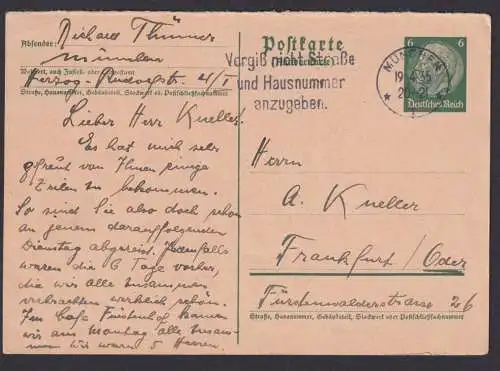 Absender: Richard Thünner
München
Wohnort, auch Zustell- oder Leitpostamt
Herzog-Rudolfstr. 4/I
Straße, Hausnummer, Gebäudeteil, Stockwerk od. Postschließfachnummer
Postkarte
Vergiß nicht Straße
und Hausnummer
anzugeben.
MÜNCHEN
19.4.35
6 6
Deutsches Reich
Lieber Herr Kneller.
Es hat mich sehr
gefreut von Ihnen einige
Zeilen zu bekommen.
So sind Sie also doch schon
an jenem darauffolgenden
Dienstag abgereist. Jedenfalls
waren die 6 Tage vorher,
die wir alle zusammen
verbrachten wirklich schön.
Im Cafe Fürstenhof kamen
wir am Montag alle zusam-
men wir waren 5 Herren.
Herrn
A. Kneller
Frankfurt / Oder
Fürstenwalderstrasse 26
Straße, Hausnummer, Gebäudeteil, Stockwerk oder Postschließfachnummer